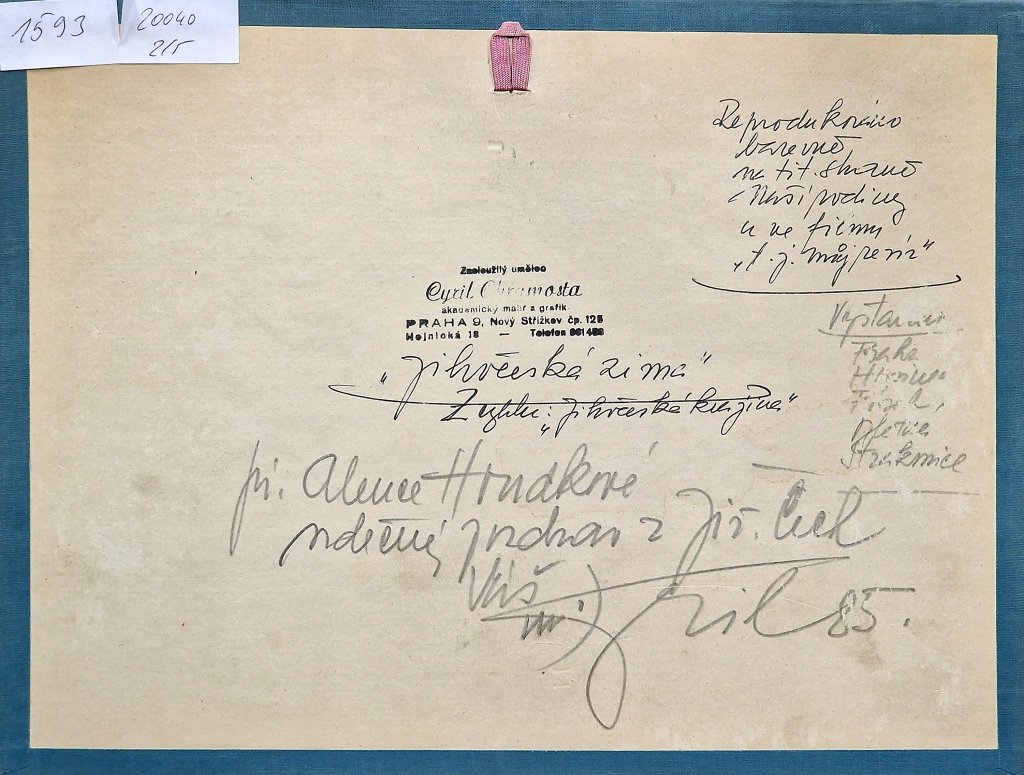 1593
20040
2/5
Reprodukováno
barevně
na tit. straně
Naší rodiny
a ve filmu
"t. j. můj
Zasloužilý umělec
Cyril Chramosta
akademický malíř a grafik
PRAHA 9, Nový Střížkov čp. 125
Hejnická 18 — Telefon
"Jihočeská zima"
Z cyklu: "Jihočeská krajina"
Vystaveno
Praha
Písek,
Strakonice
pí. Alence Hrudkové
srdečný pozdrav z Již. Čech
Váš
Cyril 85.